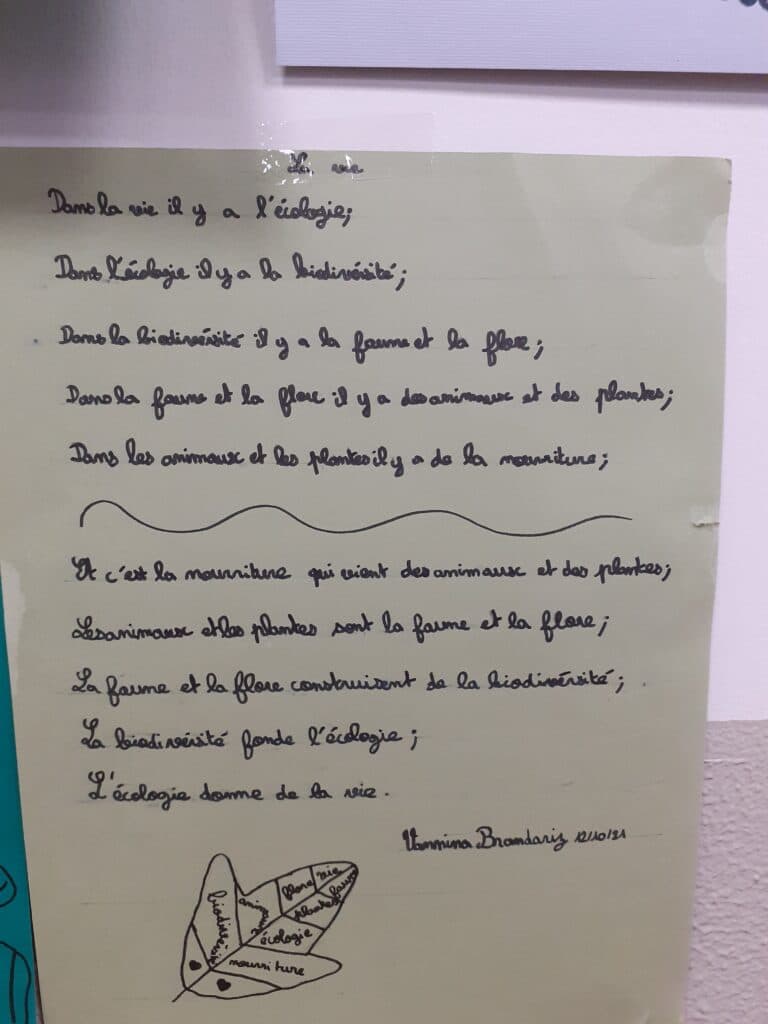 La vie
Dans la vie il y a l'écologie;
Dans l'écologie il y a la biodivérsité;
Dans la biodivérsité il y a la faune et la flore;
Dans la faune et la flore il y a des animaux et des plantes;
Dans les animaux et les plantes il y a de la nourriture;
Et c'est la nourriture qui vient des animaux et des plantes;
Les animaux et les plantes sont la faune et la flore;
La faune et la flore construisent de la biodivérsité;
La biodivérsité fonde l'écologie;
L'écologie donne de la vie.
Vannina Brandariz 12/10/21
biodivérsité
animaux
flore
vie
faune
plantes
écologie
nourriture